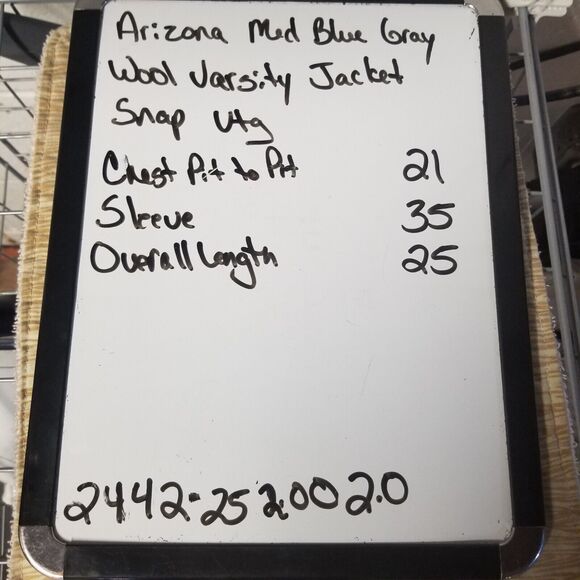 Arizona Med Blue Gray
Wool Varsity Jacket
Snap Vtg
Chest Pit to Pit 21
Sleeve 35
Overall Length 25
2442-25 2.00 2.0